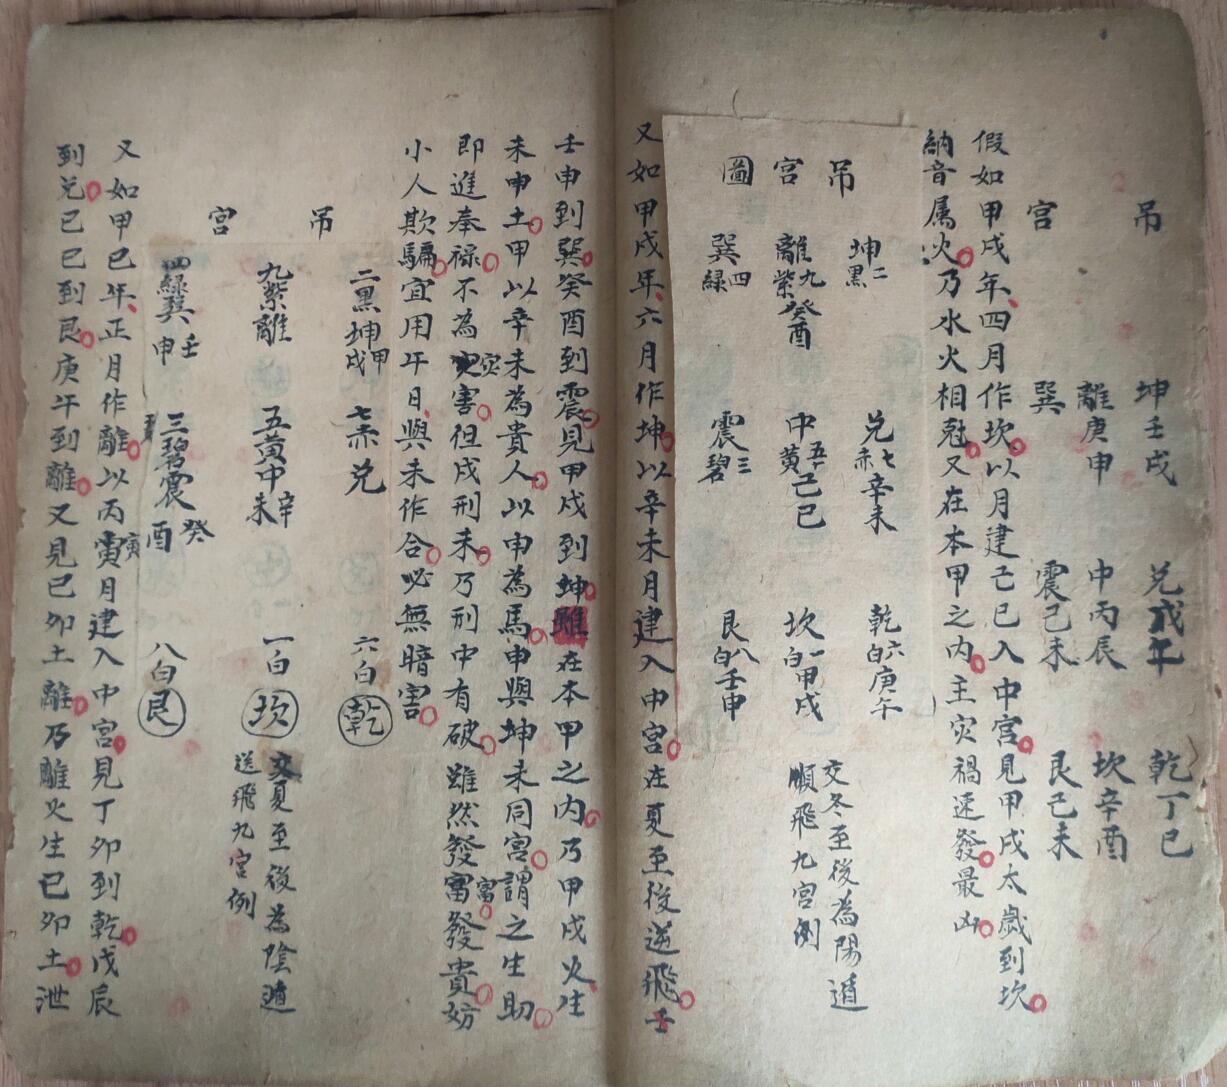 吊宮
坤壬戌 兌戊午 乾丁巳
離庚申 中丙辰 坎辛酉
巽 震己未 艮己未
假如甲戌年四月作坎以月建己巳入中宮見甲戌太歲到坎
納音属火乃水火相尅又在本甲之内主灾禍速發最凶
吊宮圖
坤二黑 兌七赤辛未 乾六白庚午
離九紫癸酉 中五黄己巳 坎一白甲戌
巽四緑 震三碧 艮八白壬申
交冬至後為陽遁
順飛九宮例
又如甲戌年六月作坤以辛未月建入中宮在夏至後逆飛壬
壬申到巽癸酉到震見甲戌到坤雖在本甲之内乃甲戌火生
未申土甲以辛未為貴人以申為馬申與坤未同宮謂之生助
即進奉禄不為灾害但戌刑未乃刑中有破雖然發富發貴妨
小人欺騙宜用午日與未作合必無暗害
吊宮
二黑坤甲戌 七赤兌 六白乾
九紫離 五黄中辛未 一白坎
四緑巽壬申 三碧震癸酉 八白艮
交夏至後為陰遁
送飛九宮例
又如甲己年正月作離以丙寅月建入中宮見丁卯到乾戊辰
到兌己巳到艮庚午到離又見己卯土離乃離火生己卯土泄